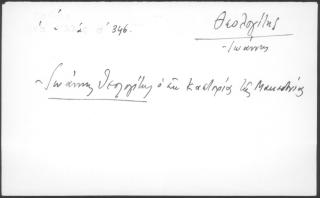 346.
Θεολογίτης
~ Ἰωάννης
~ Ἰωάννης Θεολογίτης ὁ ἐκ Καστορίας τῆς Μακεδονίας